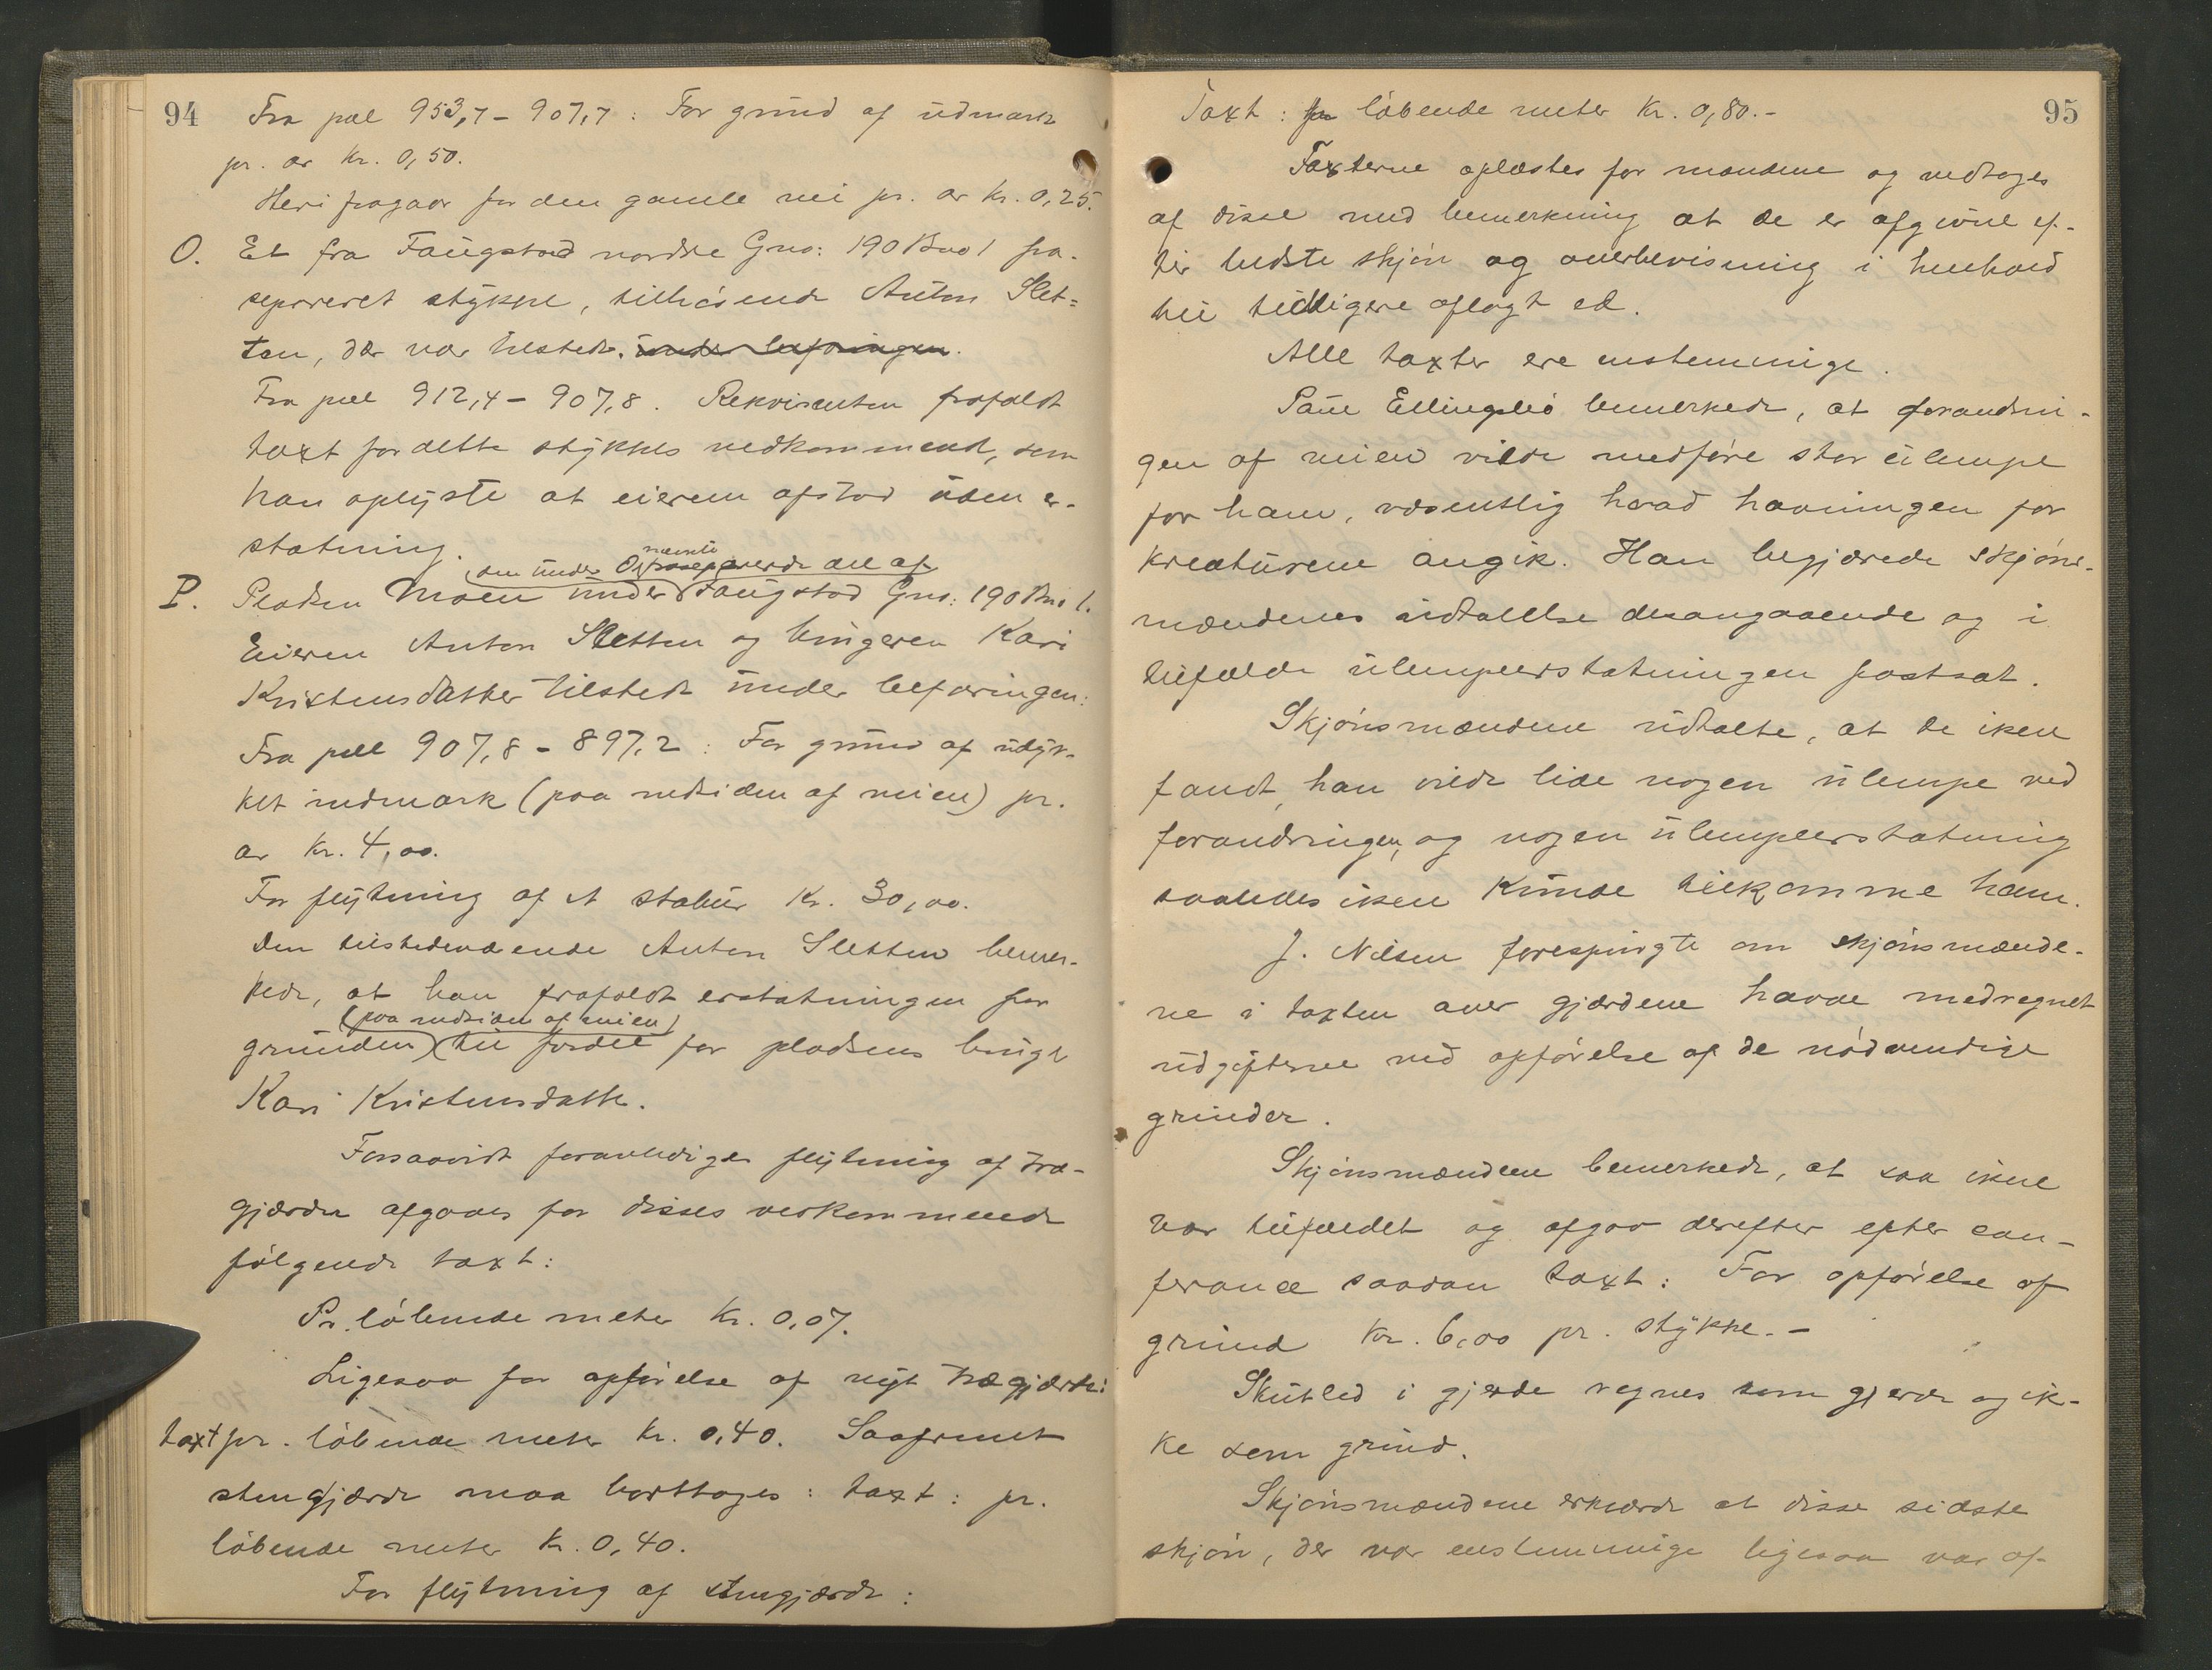 94
Fra pæl 953,7 - 907,7 : For grund af udmark
pr. ar kr. 0,50.
Heri fragaar for den gamle vei pr. ar kr. 0,25.
O. Et fra Faugstad nordre Gno: 190 Bno 1 fra-
separeret stykke, tilhörende Anton Slet=
ten, der var tilstede. under befaringen.
Fra pæl 912,4 - 907,8. Rekvirenten frafaldt
taxt for dette stykkes vedkommende, som
han oplyste at eieren afstod uden er-
statning.
nævnte
, den under O fraseparerede del af
P. Pladsen Moen under Faugstad Gno: 190 Bno 1.
Eieren Anton Sletten og brugeren Kari
Kristensdatter tilstede under befaringen:
Fra pæl 907,8 - 897,2 : For grund af udyr-
ket indmark (paa nedsiden af veien) pr.
ar kr. 4,00.
For flytning af et stabur kr. 30,00.
Den tilstedeværende Anton Sletten bemær-
kede, at han frafaldt erstatningen for
(paa nedsiden af veien)
grunden til fordel for pladsens bruger
Kari Kristensdatter.
Forsaavidt foranlediges flytning af træ-
gjærder afgaves for disses vedkommende
følgende taxt:
Pr. löbende meter kr. 0,07.
Ligesaa for opförelse af nyt trægjærde:
taxt pr. löbende meter kr. 0,40. Saafremt
stengjærde maa borttages : taxt : pr.
löbende meter kr. 0,40.
For flytning af stengjærde :
95
Taxt : pr löbende meter kr. 0,80.-
Taxterne oplæstes for mændene og vedtoges
af disse med bemerkning at de er afgivne ef-
ter bedste skjön og overbevisning i henhold
til tidligere aflagt ed.
Alle taxter ere enstemmige.
Paul Ellingsbö bemerkede, at forandrin-
gen af veien vilde medföre stor ulempe
for ham, væsentlig hvad havningen for
kreaturene angik. Han begjærede skjöns-
mændenes udtalelse desangaaende og i
tilfælde ulempeerstatningen fastsat.
Skjönsmændene udtalte, at de ikke
fandt, han vilde lide nogen ulempe ved
forandringen, og nogen ulempeerstatning
saaledes ikke kunde tilkomme ham.
J. Nilsen forespurgte om skjönsmænde-
ne i taxten over gjærdene havde medregnet
udgifterne ved opförelse af de nödvendige
grinder.
Skjönsmændene bemerkede, at saa ikke
var tilfældet og afgav derefter efter con-
ferance saadan taxt: For opförelse af
grind kr. 6,00 pr. stykke.-
Skutled i gjerde regnes som gjerde og ik-
ke som grind.
Skjönsmændene erklærede at disse sidste
skjön, der var enstemmige ligesaa var af-